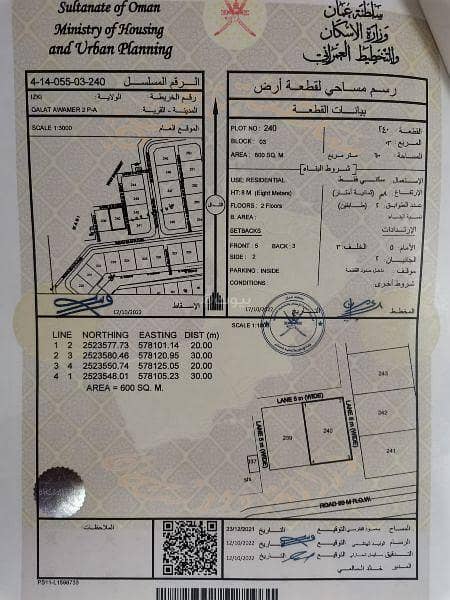 Sultanate of Oman
Ministry of Housing
and Urban Planning
سلطنة عمان
وزارة الإسكان
والتخطيط العمراني
4-14-055-03-240 الرقم المسلسل
IZKI
رقم الخريطة: الولاية:
QALAT AWAMER 2 P-A
المدينة - القرية
SCALE 1:3000
الموقع العام
WADI
الشمال
الإسقاط
12/10/2022
رسم مساحي لقطعة أرض
بيانات القطعة
PLOT NO: 240
القطعة: ٢٤٠
BLOCK: 03
المربع: ٠٣
AREA: 600 SQ. M
المساحة: ٦٠٠ متر مربع
شروط البناء
USE: RESIDENTIAL
الإستعمال: سكني فقط
HT: 8 M (Eight Meters)
الإرتفاع: ٨م (ثمانية أمتار)
FLOORS: 2 Floors
عدد الطوابق: ٢ (طابقين)
B. AREA:
نسبة البناء:
SETBACKS
الإرتدادات
FRONT: 5 BACK: 3
الأمام: ٥ الخلف: ٣
SIDE: 2
الجانبان: ٢
PARKING: INSIDE
موقف: داخل حدود القطعة
شروط أخرى
المخطط
17/10/2022
LINE NORTHING EASTING DIST (m)
1 2 2523577.73 578101.14 20.00
2 3 2523580.46 578120.95 30.00
3 4 2523550.74 578125.05 20.00
4 1 2523548.01 578105.23 30.00
AREA = 600 SQ. M.
LANE 5 m (WIDE)
LANE 5 m (WIDE)
243
242
241
240
239
237
s/s
المساح
التوقيع
التاريخ
23/12/2021
الرسام
التوقيع
التاريخ
12/10/2022
التدقيق
التوقيع
التاريخ
12/10/2022
المدير: خالد السالمي
الملاحظات
PS11-L1598739